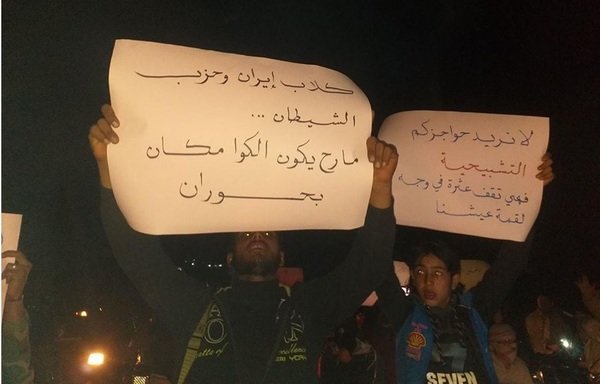 كلاب إيران وحزب
الشيطان ...
مارح يكون الكوا مكان
بحوران
لا نريد حواجزكم
التشبيحية
فهي تقف عثرة في وجه
لقمة عيشنا
SEVEN